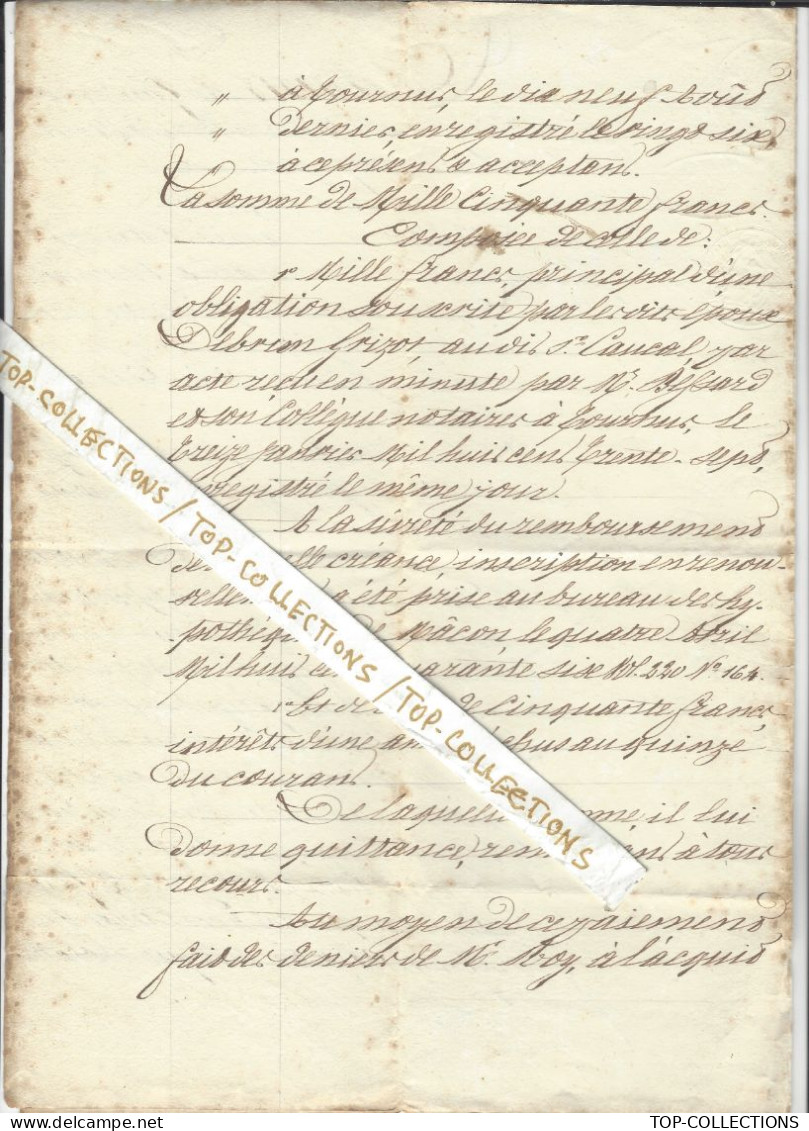 " à Tournus, le dix neuf août
" dernier, enregistré le vingt six,
à ce présent & acceptant.
La somme de Mille Cinquante francs.
Composée de celle de:
1° Mille francs, principal d'une
obligation souscrite par les dits époux
Debrun Grizot audit Sr. Caucal, par
acte reçu en minute par Me.
et son Collègue notaires à Tournus, le
treize Janvier Mil huit cent trente-sept,
enregistré le même jour.
A la sûreté du remboursement
de créance, inscription en renou-
a été prise au bureau des hy-
de Mâcon, le quatre Avril
Mil huit six Vol. 220 No. 164.
de Cinquante francs,
intérêts d'une échus au quinze
du courant.
De laquelle il lui
donne quittance, à tous
recours.
Au moyen de ce paiement
fait des deniers de Mr. Roy, à l'acquit
TOP-COLLECTIONS / TOP-COLLECTIONS / TOP-COLLECTIONS
TOP-COLLECTIONS